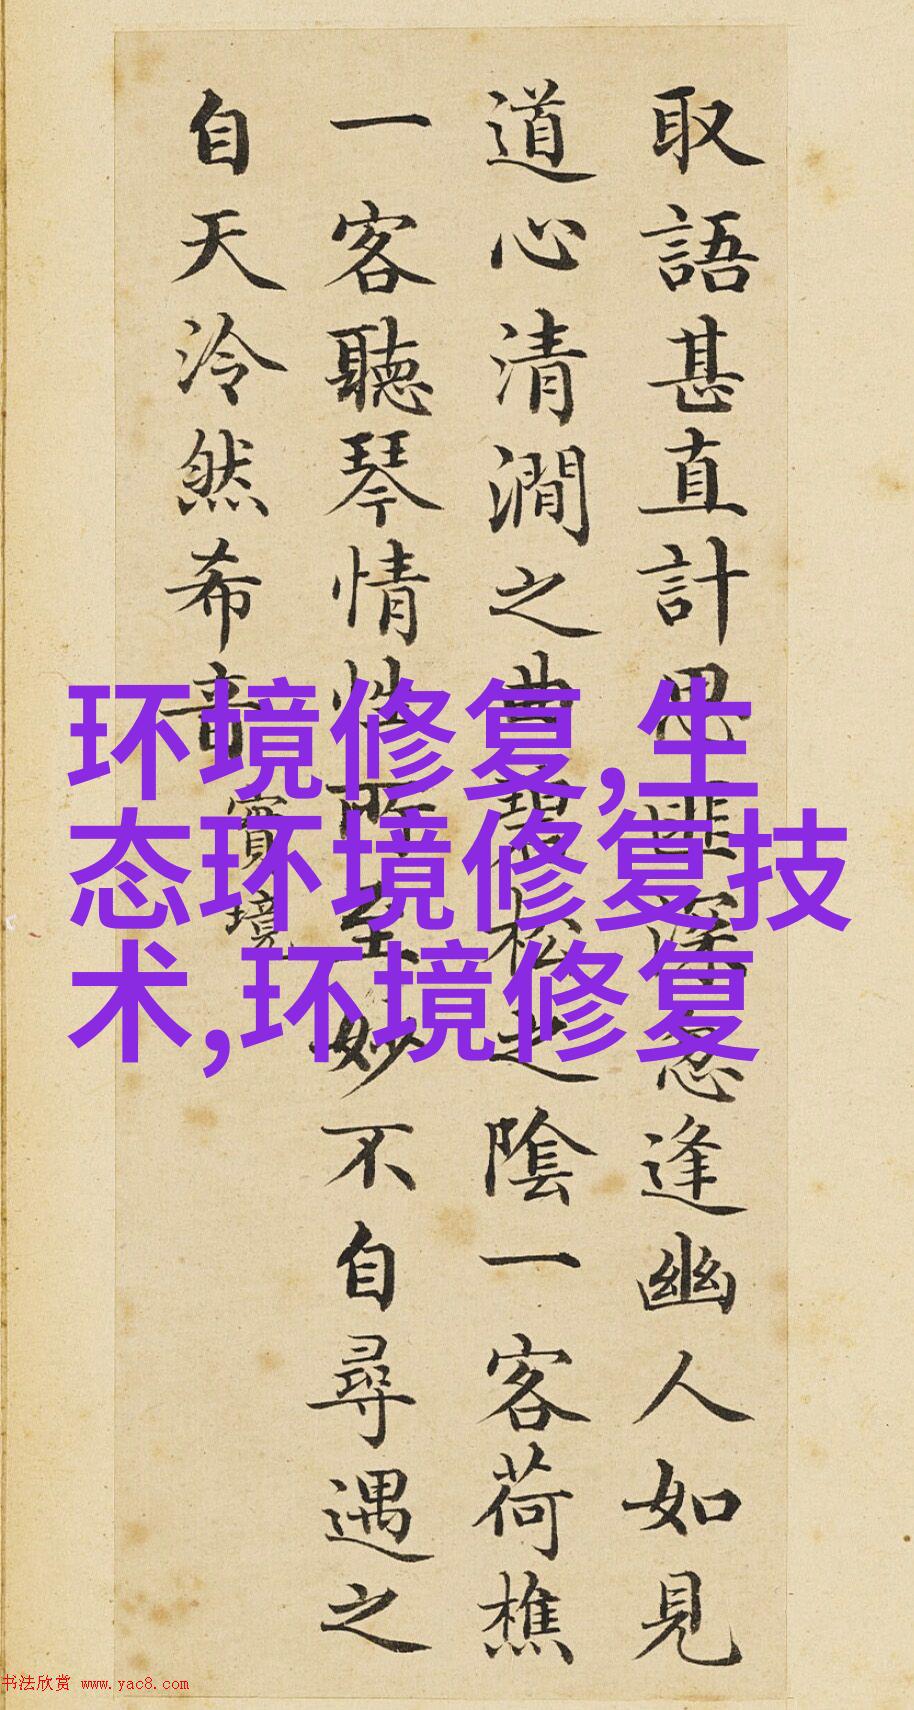 取語甚直計思匪深忽逢幽人如見
道心清澗之曲碧松之陰一客荷樵
一客聽琴情性所至妙不自尋遇之
自天泠然希音
實境
环境修复,生
态环境修复技
术,环境修复
书法欣赏 www.yac8.com